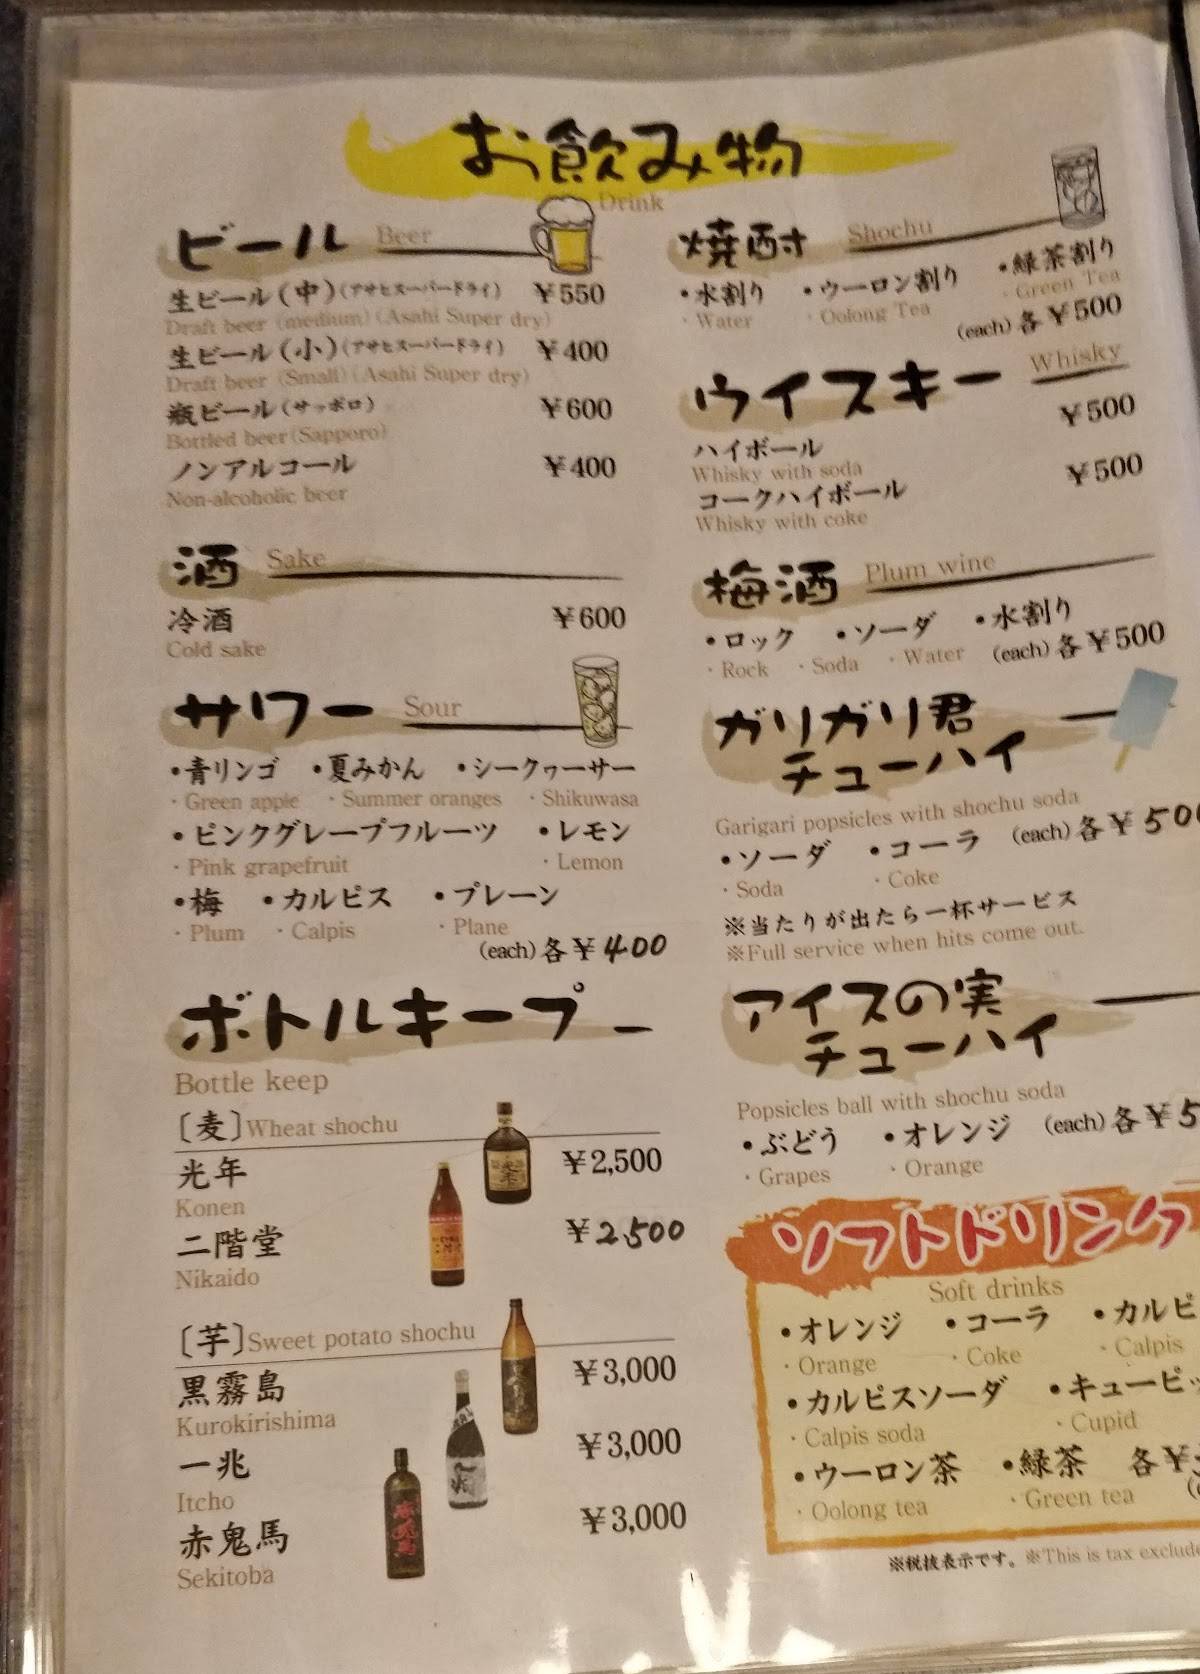 お飲み物
Drink
ビール Beer
生ビール(中)(アサヒスーパードライ) ¥550
Draft beer (medium)(Asahi Super dry)
生ビール(小)(アサヒスーパードライ) ¥400
Draft beer (Small)(Asahi Super dry)
瓶ビール(サッポロ) ¥600
Bottled beer(Sapporo)
ノンアルコール ¥400
Non-alcoholic beer
酒 Sake
冷酒 ¥600
Cold sake
サワー Sour
・青リンゴ ・夏みかん ・シークヮーサー
・Green apple ・Summer oranges ・Shikuwasa
・ピンクグレープフルーツ ・レモン
・Pink grapefruit ・Lemon
・梅 ・カルピス ・プレーン
・Plum ・Calpis ・Plane
(each) 各¥400
ボトルキープ
Bottle keep
〔麦〕Wheat shochu
光年 ¥2,500
Konen
二階堂 ¥2,500
Nikaido
〔芋〕Sweet potato shochu
黒霧島 ¥3,000
Kurokirishima
一兆 ¥3,000
Itcho
赤鬼馬 ¥3,000
Sekitoba
焼酎 Shochu
・水割り ・ウーロン割り ・緑茶割り
・Water ・Oolong Tea ・Green Tea
(each) 各¥500
ウイスキー Whisky
ハイボール ¥500
Whisky with soda
コークハイボール ¥500
Whisky with coke
梅酒 Plum wine
・ロック ・ソーダ ・水割り
・Rock ・Soda ・Water (each) 各¥500
ガリガリ君
チューハイ
Garigari popsicles with shochu soda
・ソーダ ・コーラ (each) 各¥500
・Soda ・Coke
※当たりが出たら一杯サービス
※Full service when hits come out.
アイスの実
チューハイ
Popsicles ball with shochu soda
・ぶどう ・オレンジ (each) 各¥5
・Grapes ・Orange
ソフトドリンク
Soft drinks
・オレンジ ・コーラ ・カルピ
・Orange ・Coke ・Calpis
・カルピスソーダ ・キューピッ
・Calpis soda ・Cupid
・ウーロン茶 ・緑茶 各¥
・Oolong tea ・Green tea
※税抜表示です。※This is tax exclude